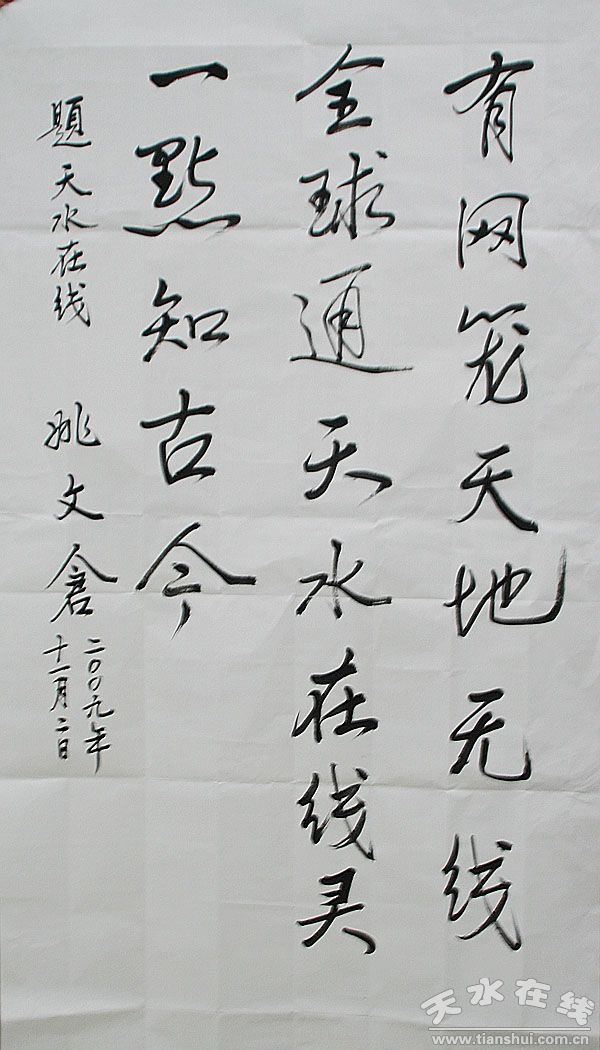 有网笼天地无线
全球通天水在线灵
一點知古今
題天水在线
姚文倉
二〇〇九年
十一月二日
天水在线
www.tianshui.com.cn